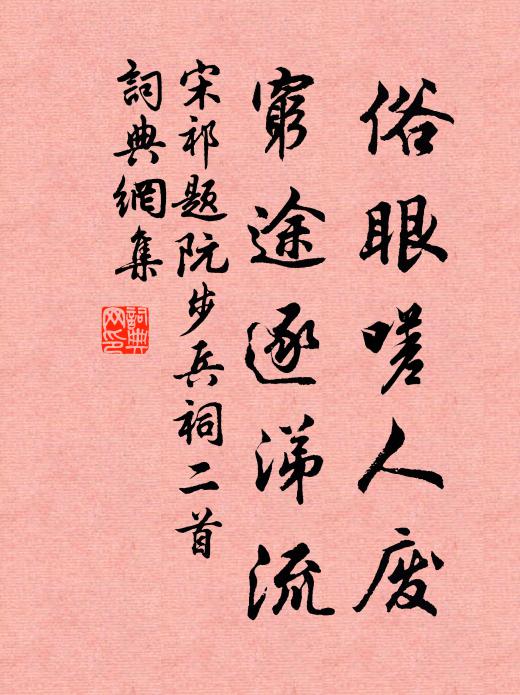 俗眼嗟人废
窮途逐涕流
宋祁题阮步兵祠二首
詞典網集
詞典
网印